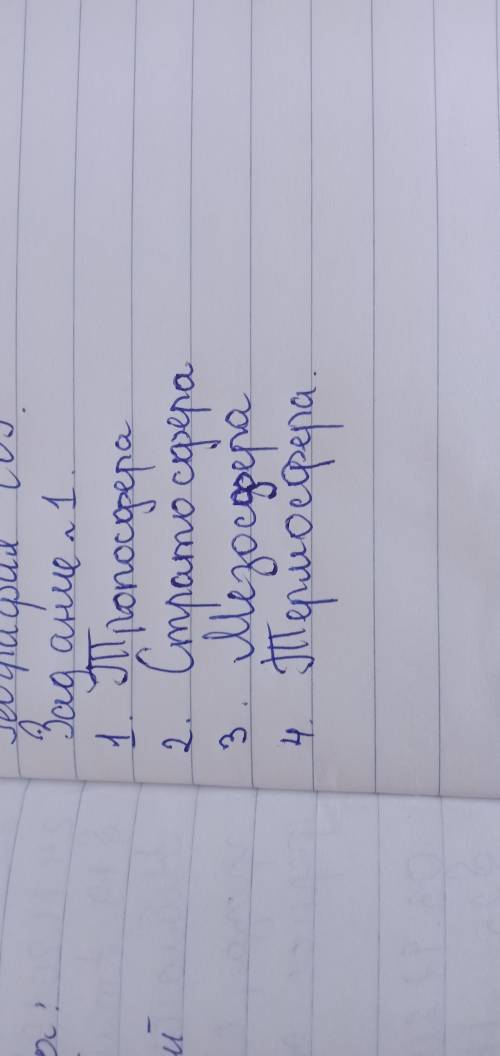 География
Задание №1.
1. Тропосфера
2. Стратосфера
3. Мезосфера
4. Термосфера.